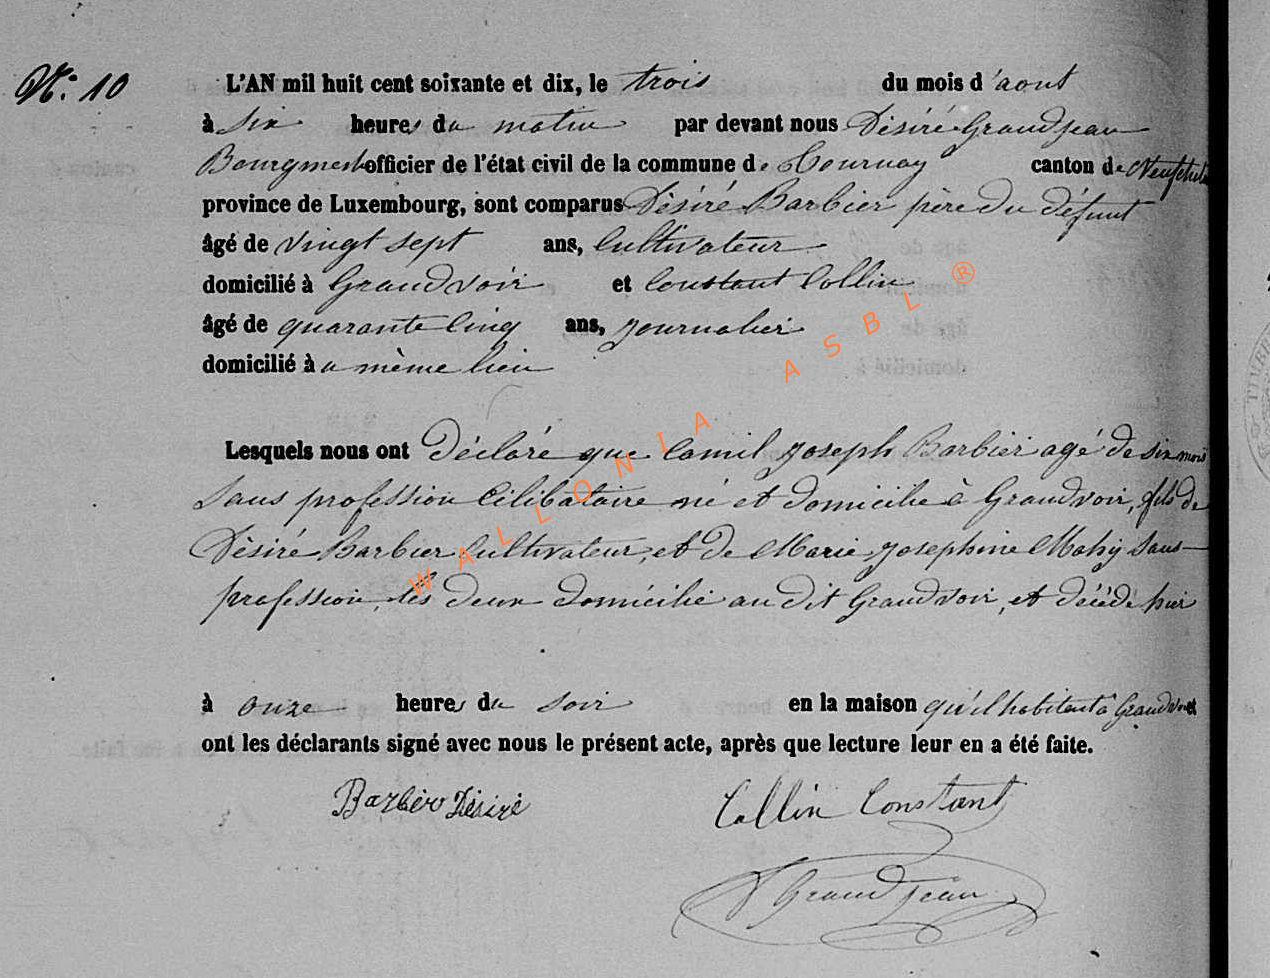 N.° 10
L'AN mil huit cent soixante et dix, le trois du mois d'aout
à six heures du matin par devant nous Désiré Grandjean
Bourgmest officier de l'état civil de la commune de Tournay canton de Neufchat
province de Luxembourg, sont comparus Désiré Barbier père du défunt
âgé de vingt sept ans, Cultivateur
domicilié à Grandvoir et Constant Collin
âgé de quarante Cinq ans, journalier
domicilié à u même lieu
Lesquels nous ont Déclaré que Camil Joseph Barbier agé de six mois
Sans profession Célibataire né et domicilie à Grandvoir, fils de
Désiré Barbier Cultivateur, et de Marie Josephine Mahy Sans
profession, les deux domicilié au dit Grandvoir, et décédé hier
à onze heures du soir en la maison qu'il habitant à Grandvoir et
ont les déclarants signé avec nous le présent acte, après que lecture leur en a été faite.
Barbier Désiré Collin Constant
D Grandjean
WALLONIA ASBL ®
TIMBRE